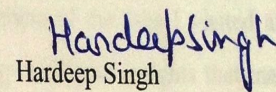 Hardeep Singh
Hardeep Singh